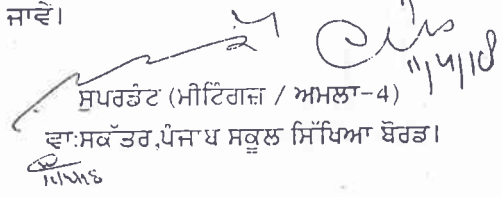 ਜਾਵੇਂ।
11/4/18
ਸੁਪਰਡੰਟ (ਮੀਟਿੰਗਜ਼ / ਅਮਲਾ-4)
ਵਾ:ਸਕੱਤਰ,ਪੰਜਾਬ ਸਕੂਲ ਸਿੱਖਿਆ ਬੋਰਡ।